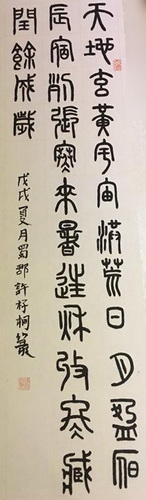 天地玄黃宇宙洪荒日月盈昃
辰宿列張寒來暑往秋收冬藏
閏餘成歲
戊戌夏月蜀郡許桐篆